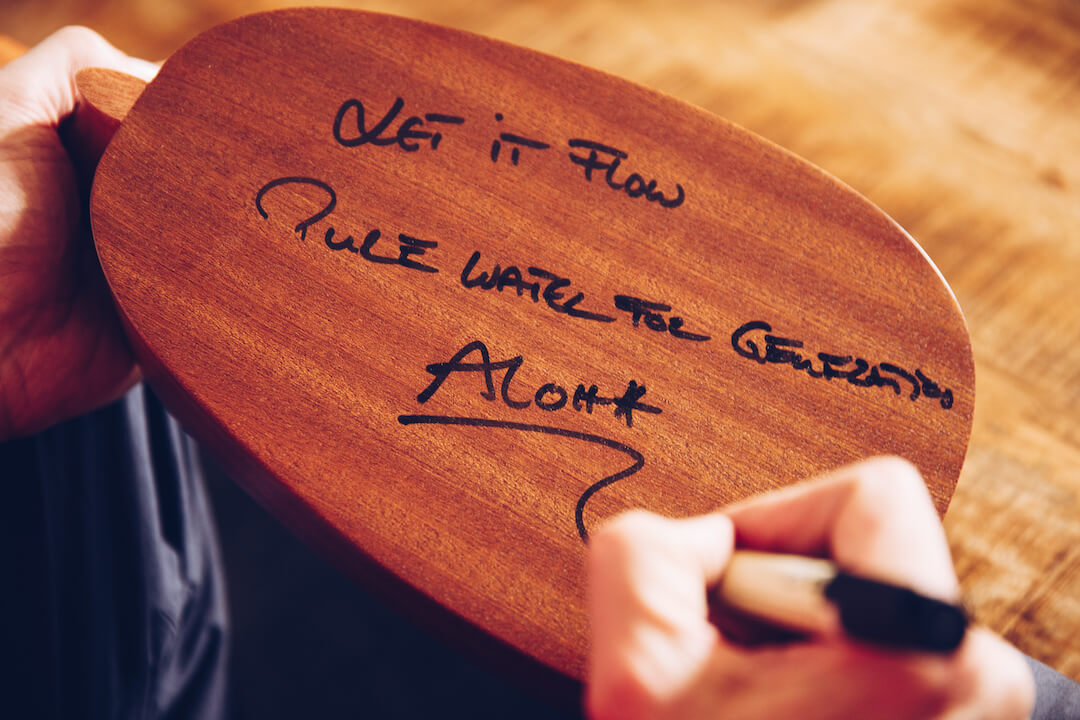 LET iT FLOW
PURE WATER FOR GENERATIONS
ALOHA